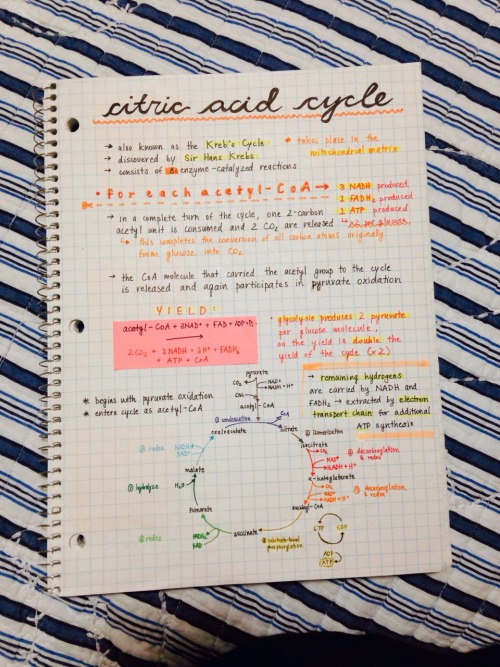 citric acid cycle
→ also known as the Kreb's Cycle
→ discovered by Sir Hans Krebs
→ consists of 8 enzyme-catalyzed reactions
* takes place in the
mitochondrial matrix
• for each acetyl-CoA →
3 NADH produced
1 FADH₂ produced
1 ATP produced
→ in a complete turn of the cycle, one 2-carbon
acetyl unit is consumed and 2 CO₂ are released
↳ this completes the conversion of all carbon atoms originally
from glucose into CO₂
→ the CoA molecule that carried the acetyl group to the cycle
is released and again participates in pyruvate oxidation
YIELD:
acetyl-CoA + 3NAD⁺ + FAD + ADP + Pi
→
2CO₂ + 3NADH + 3H⁺ + FADH₂
+ ATP + CoA
• glycolysis produces 2 pyruvate
per glucose molecule,
so the yield is double the
yield of the cycle (x2)
→ remaining hydrogens
are carried by NADH and
FADH₂ → extracted by electron
transport chain for additional
ATP synthesis
* begins with pyruvate oxidation
* enters cycle as acetyl-CoA
pyruvate
CO₂
NAD⁺
NADH + H⁺
CoA
acetyl-CoA
① condensation
CoA
oxaloacetate
citrate
② isomerization
isocitrate
CO₂
NAD⁺
NADH + H⁺
③ decarboxylation
& redox
α-ketoglutarate
CO₂
NAD⁺
NADH + H⁺
④ decarboxylation
& redox
succinyl-CoA
⑤ substrate-level
phosphorylation
GTP
GDP
ADP
ATP
succinate
⑥ redox
FADH₂
FAD
fumarate
⑦ hydrolyze
H₂O
malate
⑧ redox
NADH
NAD⁺